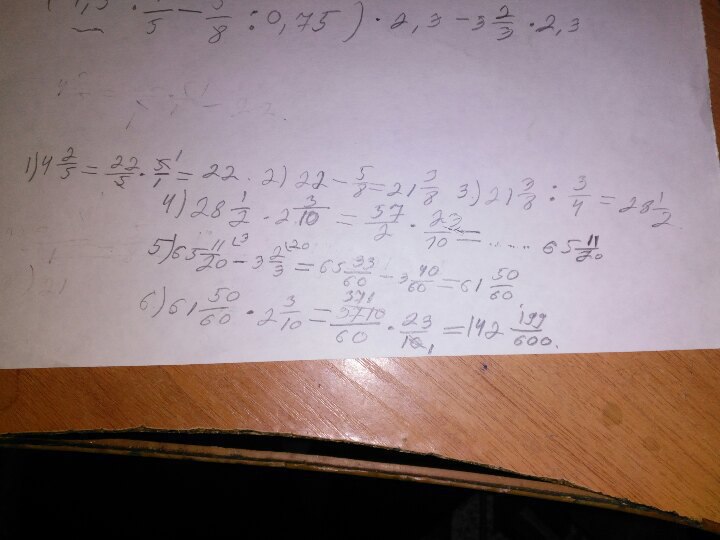 : 0,75) · 2,3 - 3 2/3 · 2,3
1) 4 2/5 = 22/5 · 5/1 = 22. 2) 22 - 5/8 = 21 3/8 3) 21 3/8 : 3/4 = 28 1/2
4) 28 1/2 · 2 3/10 = 57/2 · 23/10 = ..... 65 11/20
5) 65 11/20 - 3 2/3 = 65 33/60 - 3 40/60 = 61 50/60
6) 61 50/60 · 2 3/10 = 3710/60 · 23/10 = 142 199/600.